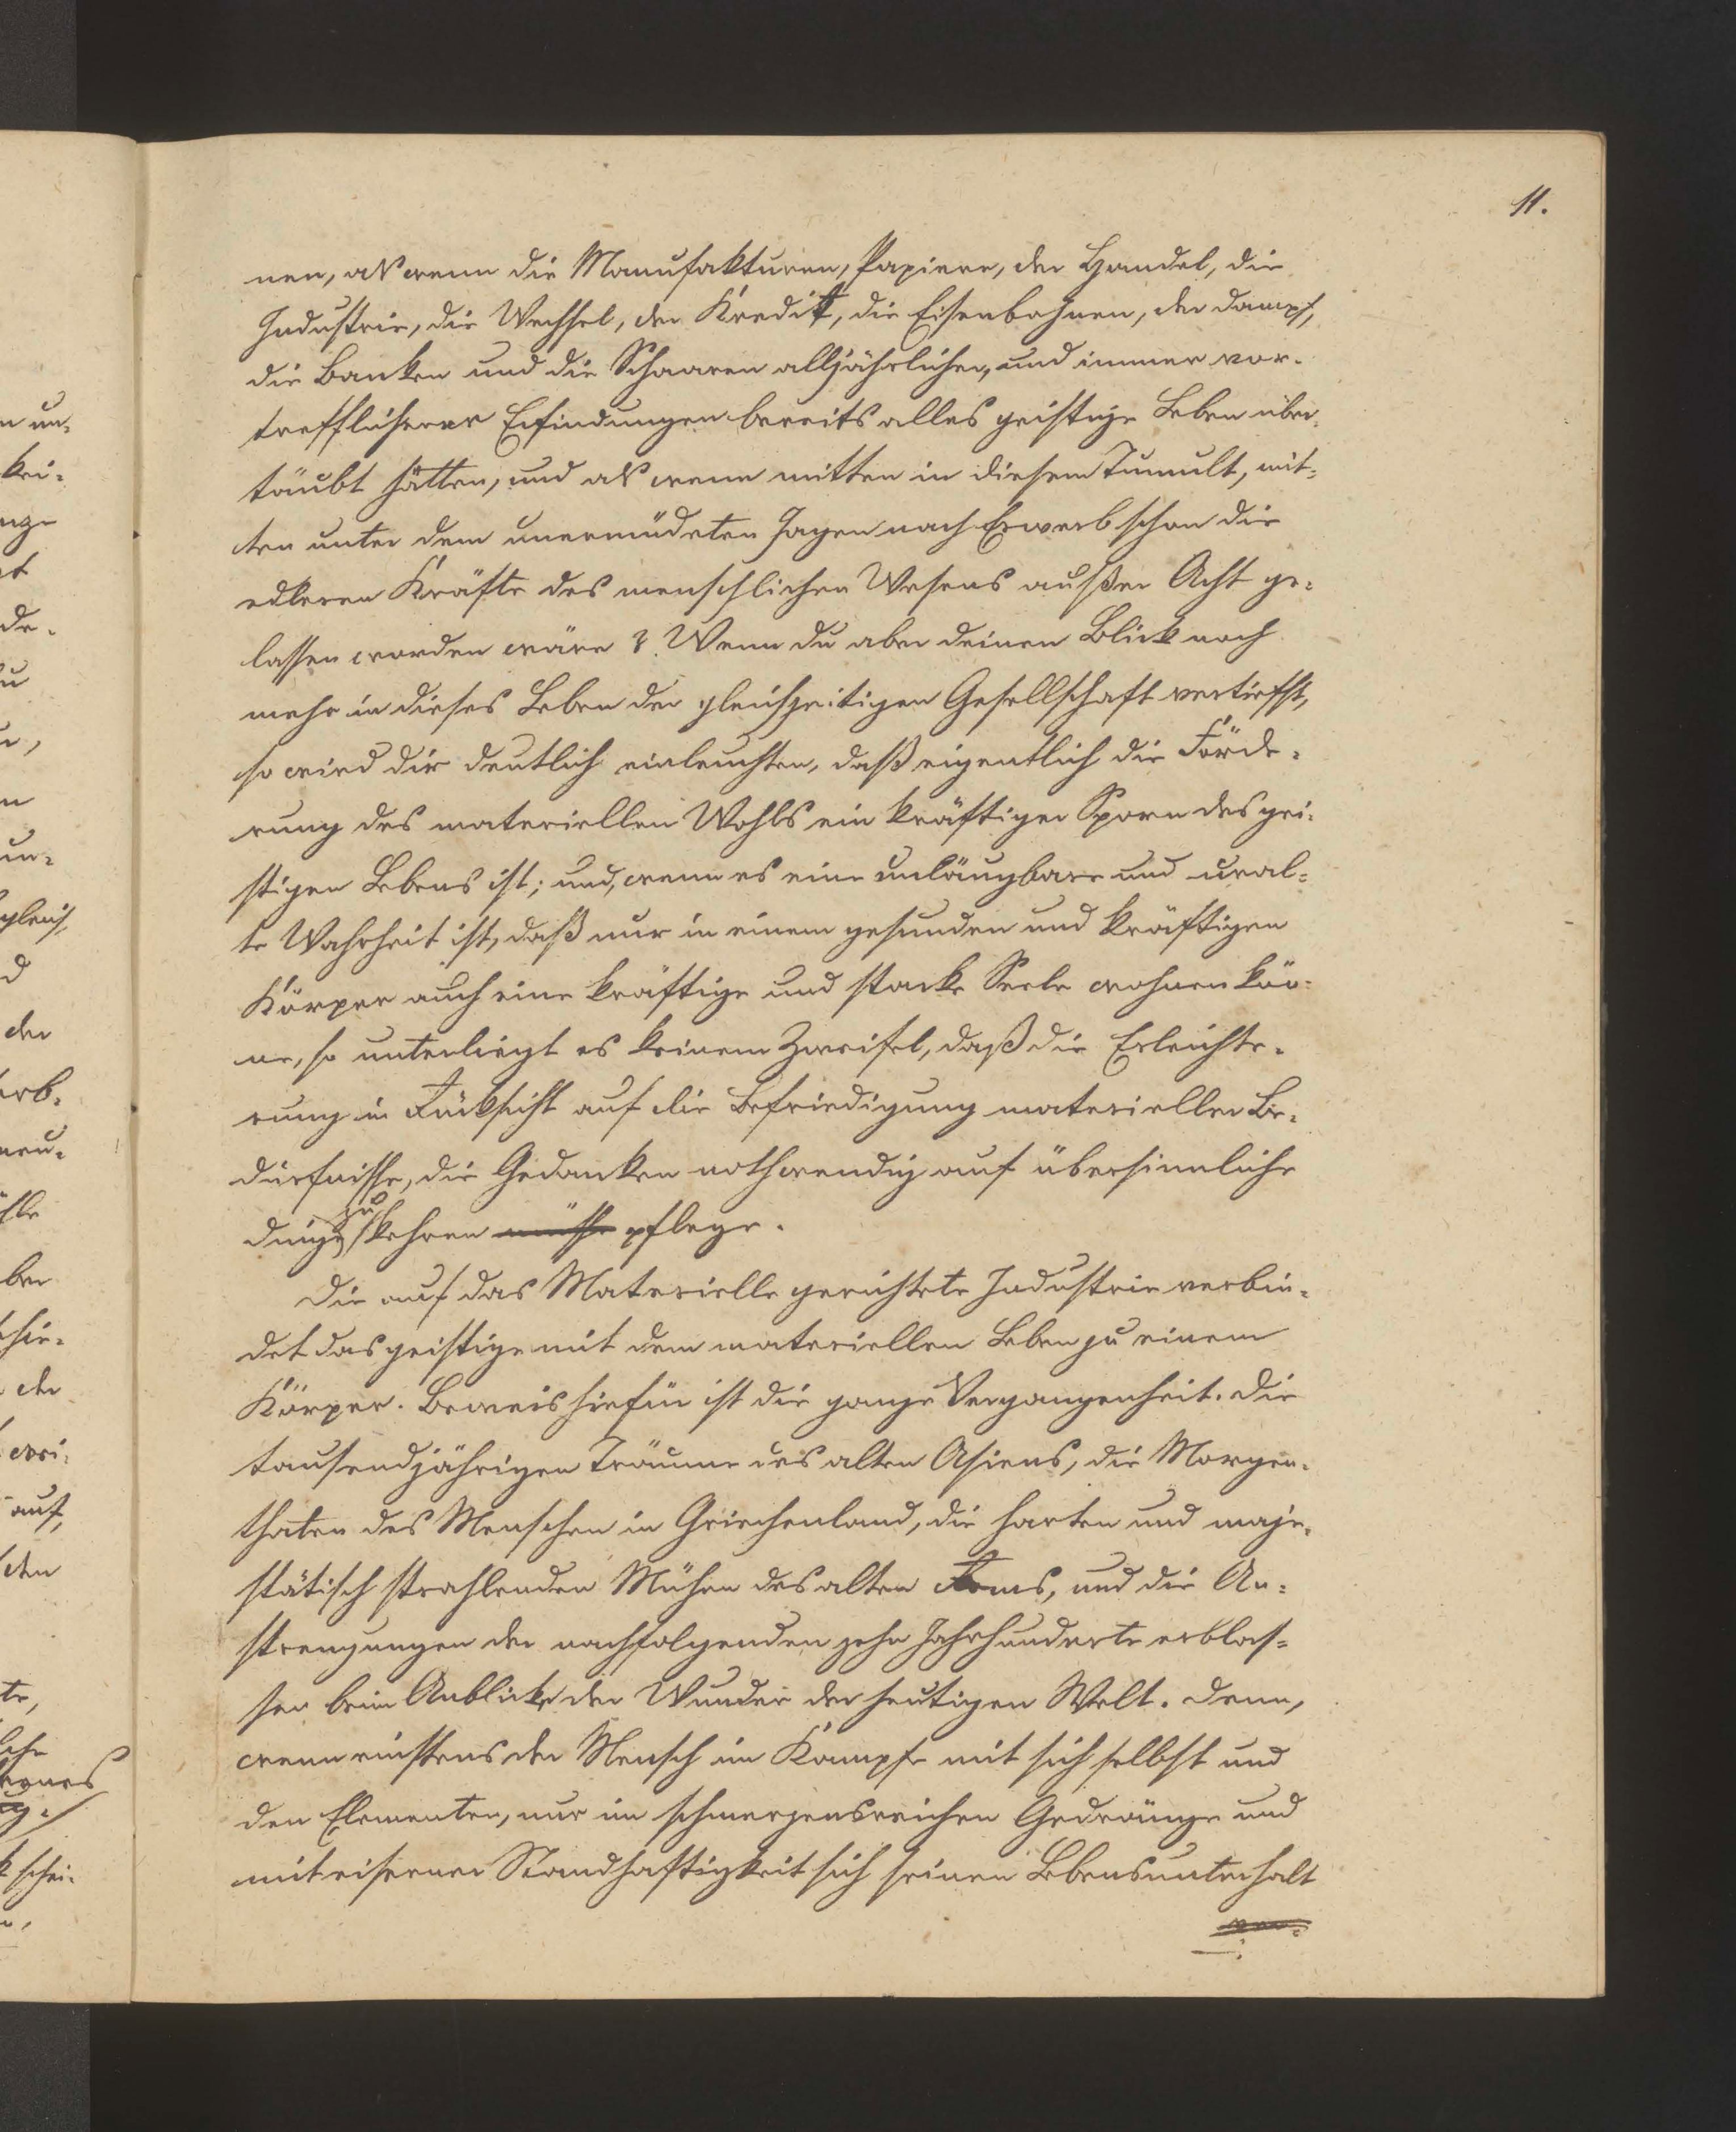 11.
nen, als wenn die Manufakturen, Papiere, der Handel, die
Industrie, die Wechsel, der Kredit, die Eisenbahnen, der Dampf,
die Banken und die Schaaren alljährlicher, und immer vor-
trefflicherer Erfindungen bereits alles geistige Leben über-
täubt hätten, und als wenn mitten in diesem Tumult, mit-
ten unter dem unermüdeten Jagen nach Erwerb schon die
edleren Kräfte des menschlichen Wesens außer Acht ge-
lassen worden wären? Wenn du aber deinen Blick noch
mehr in dieses Leben der gleichzeitigen Gesellschaft vertiefst,
so wird dir deutlich einleuchten, daß eigentlich die Förde-
rung des materiellen Wohls ein kräftiger Sporn des gei-
stigen Lebens ist; und, wenn es eine unläugbare und ural-
te Wahrheit ist, daß nur in einem gesunden und kräftigen
Körper auch eine kräftige und starke Seele wohnen kön-
ne, so unterliegt es keinem Zweifel, daß die Erleichte-
rung in Rücksicht auf die Befriedigung materieller Be-
dürfnisse, die Gedanken nothwendig auf übersinnliche
Dinge zu kehren müsse pflege.
Die auf das Materielle gerichtete Industrie verbin-
det das geistige mit dem materiellen Leben zu einem
Körper. Beweis hiefür ist die ganze Vergangenheit. Die
tausendjährigen Träume des alten Asiens, die Morgen-
thaten des Menschen in Griechenland, die harten und maje-
stätisch strahlenden Mühen des alten Roms, und die An-
strengungen der nachfolgenden zehn Jahrhunderte erblas-
sen beim Anblicke der Wunder der heutigen Welt. Denn,
wenn einstens der Mensch im Kampfe mit sich selbst und
den Elementen, nur im schmerzensreichen Gedränge und
mit eiserner Standhaftigkeit sich seinen Lebensunterhalt